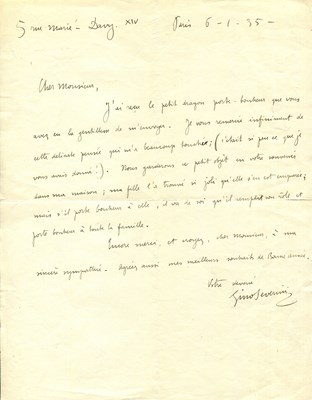 5 rue Marie-Davy. XIV Paris 6-1-35-
Cher Monsieur,
J'ai reçu le petit dragon porte-bonheur que vous
avez eu la gentillesse de m'envoyer. Je vous remercie infiniment de
cette délicate pensée qui m'a beaucoup touché; (c'était si peu ce que je
vous avais donné!). Nous garderons ce petit objet en votre souvenir
dans ma maison; ma fille l'a trouvé si joli qu'elle s'en est emparée;
mais s'il porte bonheur à elle, il va de soi qu'il remplit son rôle et
porte bonheur à toute la famille.
Encore merci, et croyez, cher Monsieur, à ma
sincère sympathie. Agréez aussi mes meilleurs souhaits de Bonne année.
Votre dévoué
Gino Severini